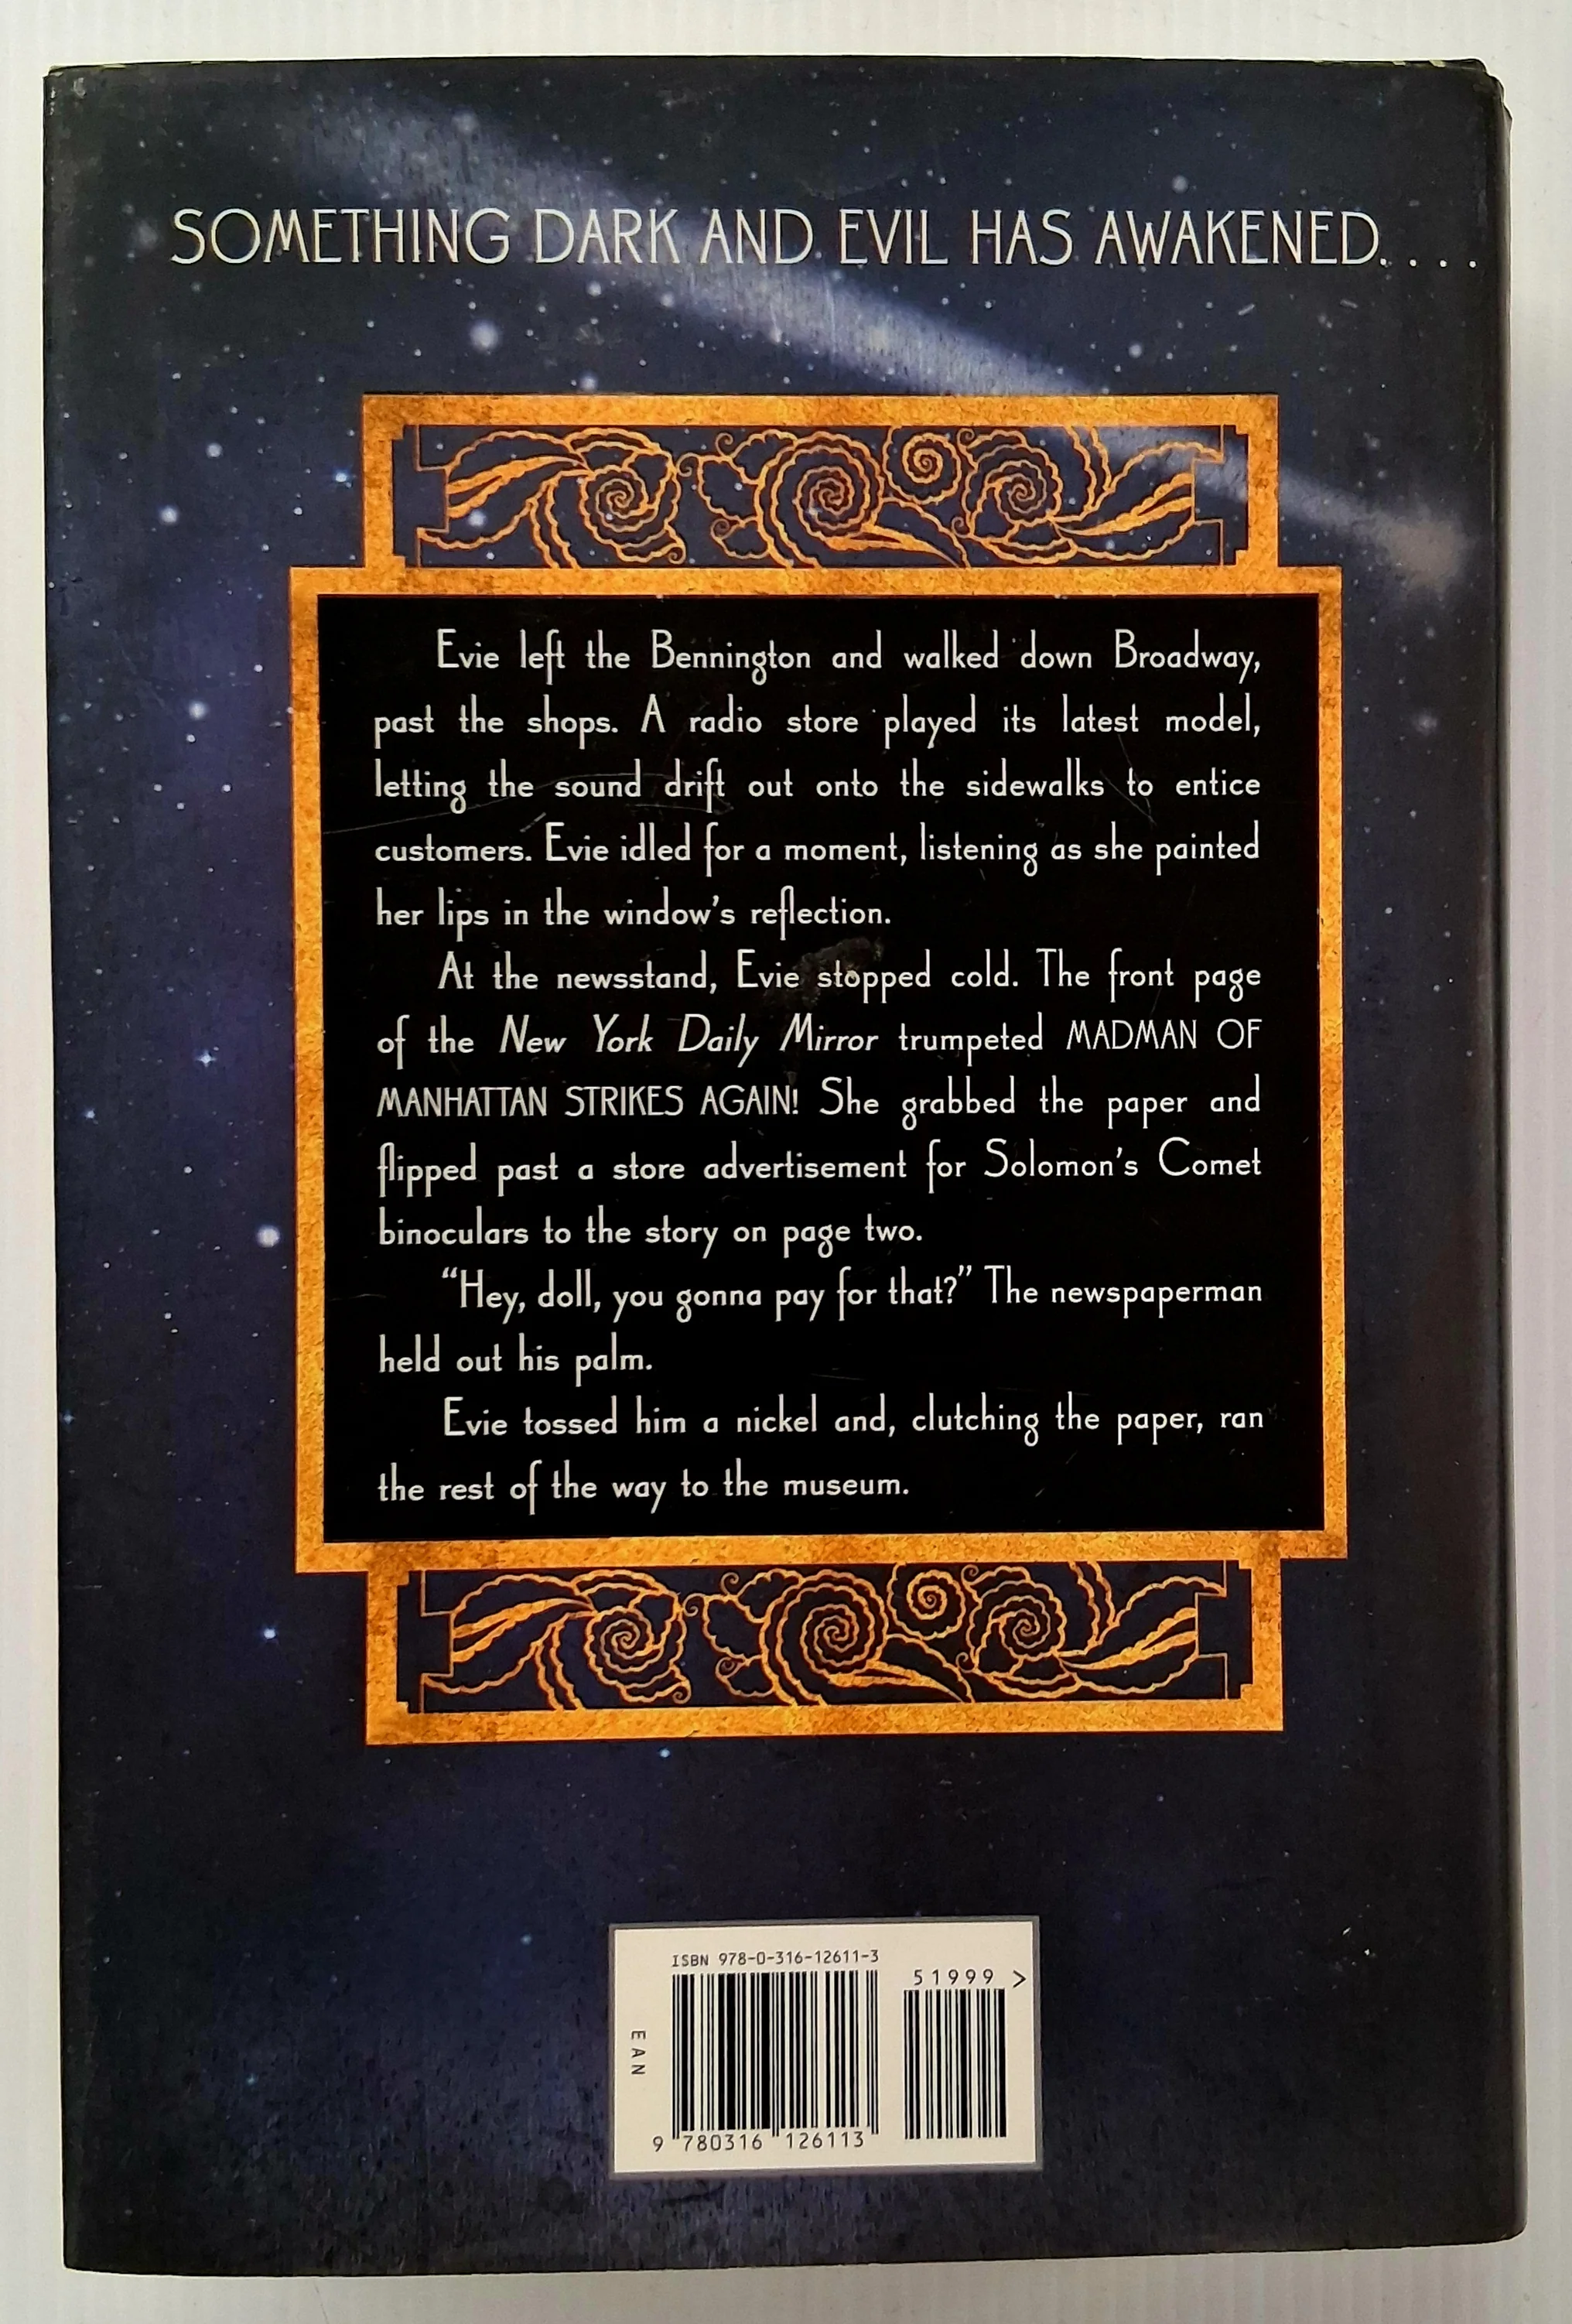 SOMETHING DARK AND EVIL HAS AWAKENED. . . .
Evie left the Bennington and walked down Broadway,
past the shops. A radio store played its latest model,
letting the sound drift out onto the sidewalks to entice
customers. Evie idled for a moment, listening as she painted
her lips in the window's reflection.
At the newsstand, Evie stopped cold. The front page
of the New York Daily Mirror trumpeted MADMAN OF
MANHATTAN STRIKES AGAIN! She grabbed the paper and
flipped past a store advertisement for Solomon's Comet
binoculars to the story on page two.
“Hey, doll, you gonna pay for that?” The newspaperman
held out his palm.
Evie tossed him a nickel and, clutching the paper, ran
the rest of the way to the museum.
ISBN 978-0-316-12611-3
51999 >
EAN
9 780316 126113